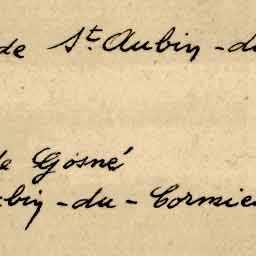 de St. Aubin - du
de Gosné
bin - du - Cormie